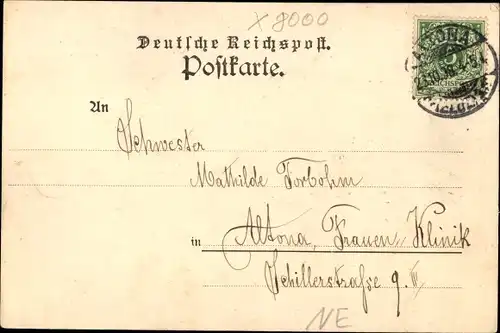 X 8000
Deutsche Reichspost.
Postkarte.
ALTONA
An
Schwester
Mathilde Forbohm
in Altona, Frauen Klinik
Schillerstraße 9. II
NE